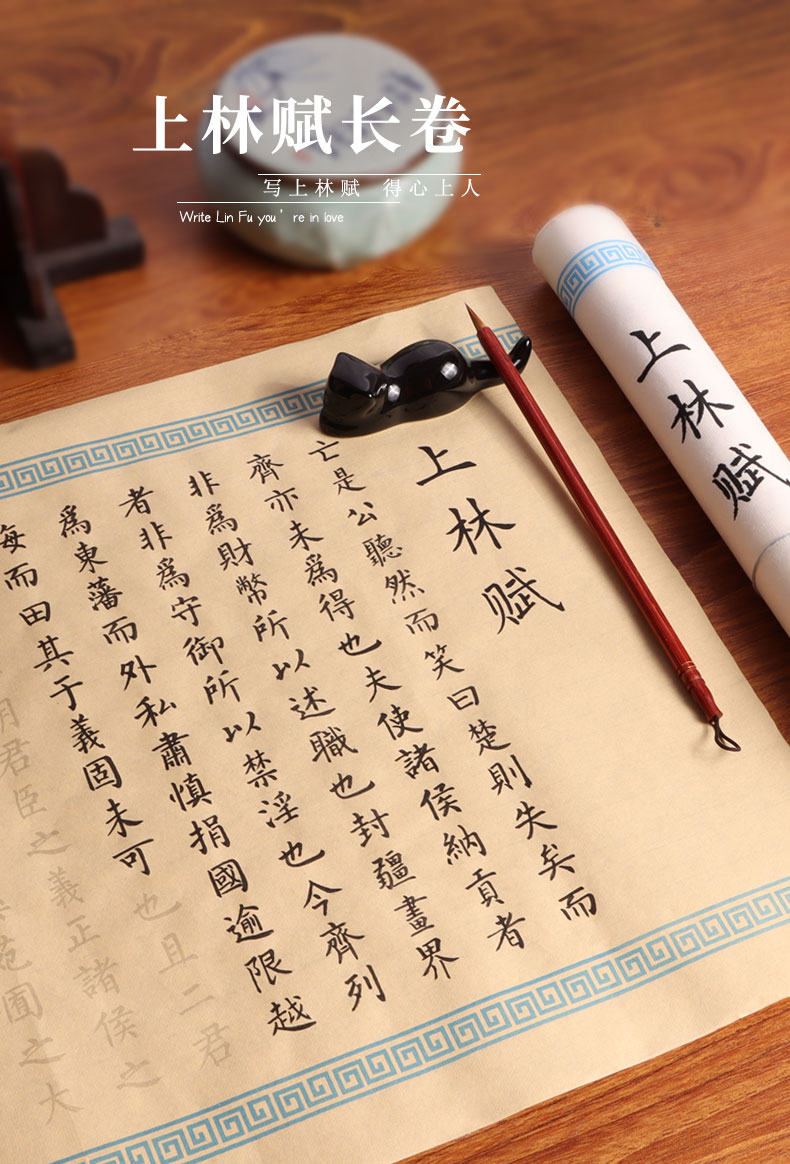 上林赋长卷
写上林赋 得心上人
Write Lin Fu you're in love
上林赋
上林赋
亡是公聽然而笑曰楚則失矣而
齊亦未爲得也夫使諸侯納貢者
非爲財幣所以述職也封疆畫界
者非爲守御所以禁淫也今齊列
爲東藩而外私肅慎捐國逾限越
海而田其于義固未可也且二君
君臣之義正諸侯之
囿之大